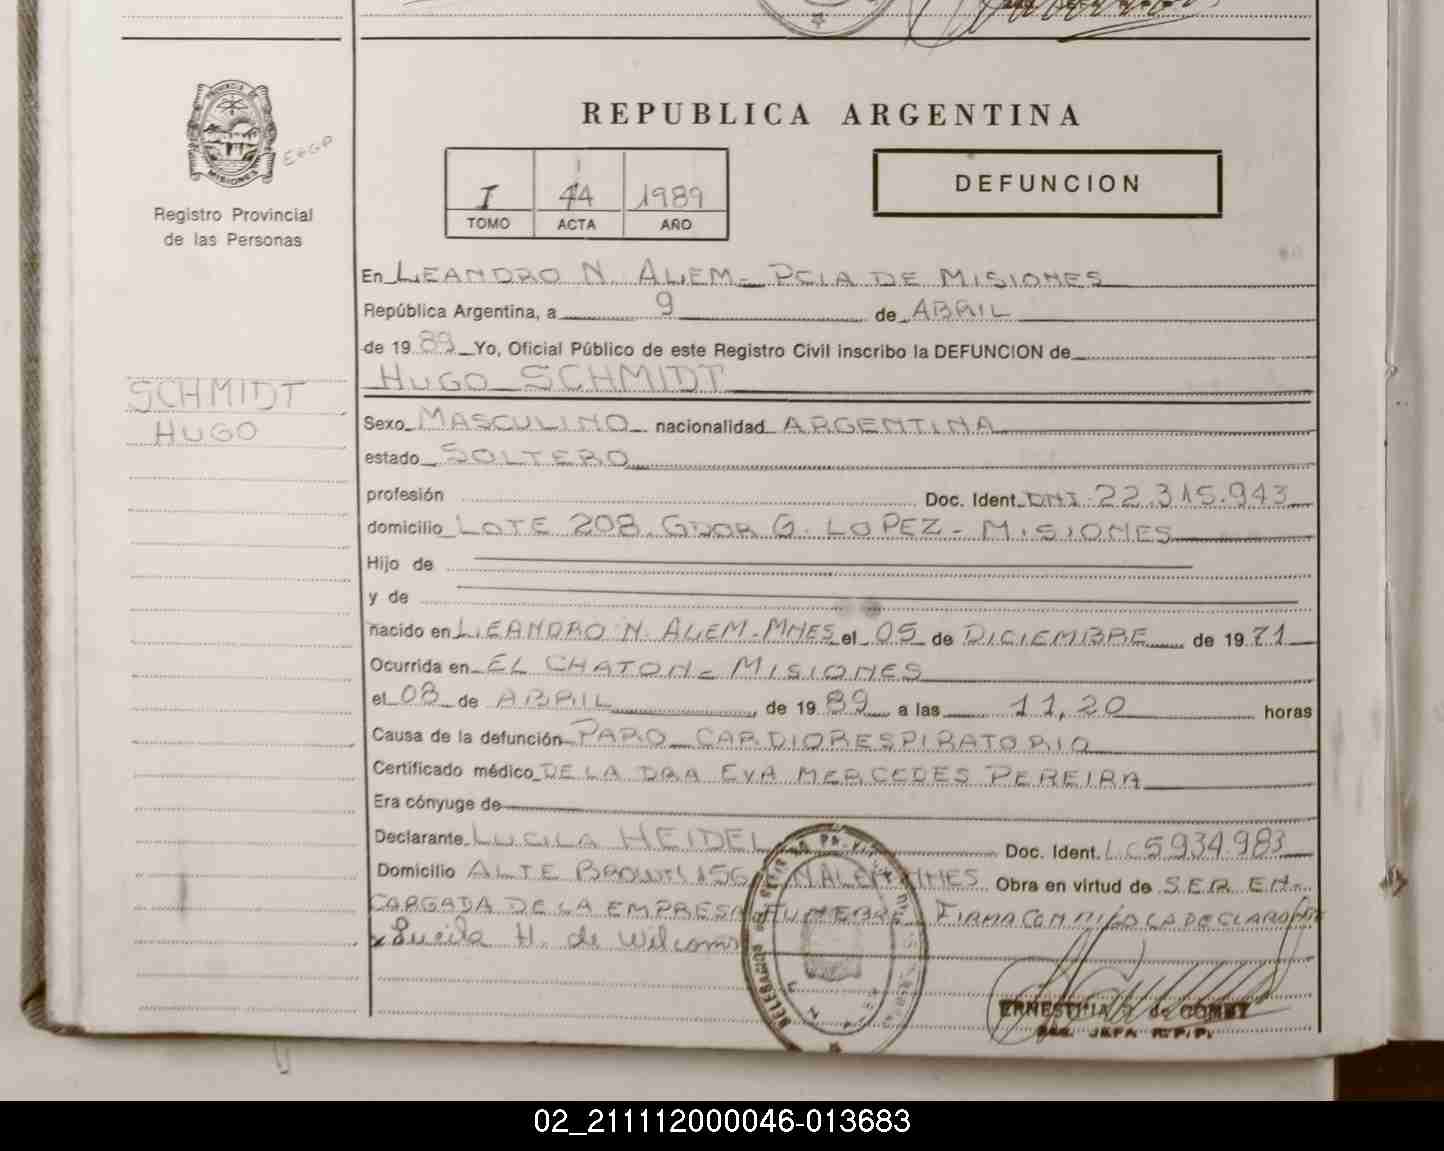 PROVINCIA DE
MISIONES
Registro Provincial
de las Personas
SCHMIDT
HUGO
REPUBLICA ARGENTINA
I 44 1989
TOMO ACTA AÑO
DEFUNCION
En LEANDRO N. ALEM - PCIA DE MISIONES
República Argentina, a 9 de ABRIL
de 1989 Yo, Oficial Público de este Registro Civil inscribo la DEFUNCION de
HUGO SCHMIDT
Sexo MASCULINO nacionalidad ARGENTINA
estado SOLTERO
profesión Doc. Ident. DNI. 22.315.943
domicilio LOTE 208. GDOR G. LOPEZ - MISIONES
Hijo de
y de
nacido en LEANDRO N. ALEM - MNES el 05 de DICIEMBRE de 1971
Ocurrida en EL CHATON - MISIONES
el 08 de ABRIL de 1989 a las 11,20 horas
Causa de la defunción PARO CARDIORESPIRATORIO
Certificado médico DE LA DRA EVA MERCEDES PEREIRA
Era cónyuge de
Declarante LUCILA HEIDEL Doc. Ident. LC 5934.983
Domicilio ALTE BROWN 156 N ALEM MNES Obra en virtud de SER EN-
CARGADA DE LA EMPRESA FUNEBRE. FIRMA CONMIGO LA DECLARANTE
Lucila H. de
ERNESTINA de
JEFA R.P.P.
02_211112000046-013683